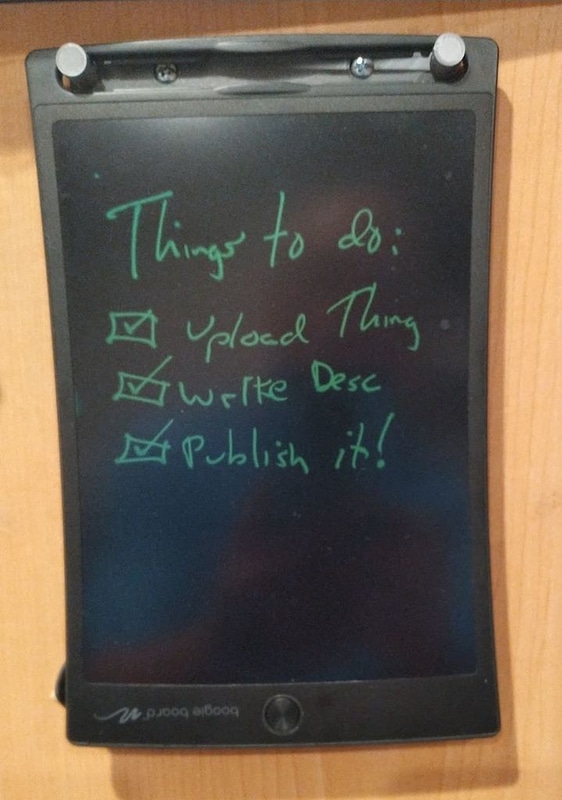 Things to do:
☑ Upload Thing
☑ Write Desc
☑ Publish it!
boogie board